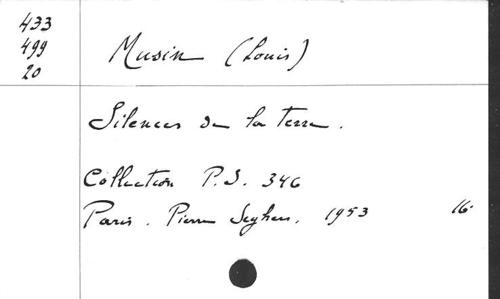 433
499
20
Musin (Louis)
Silences de la terre.
Collection P.S. 346
Paris. Pierre Seghers, 1953 16°